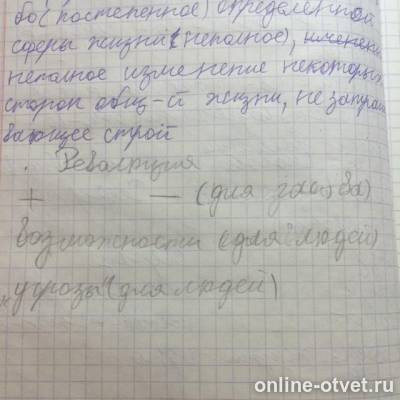 бо(постепенное) определенной
сферы жизни (неполное), изменени
неполное изменение некоторых
сторон общ-й жизни, не затраги
вающее строй
. Революция
+ — (для гос-ва)
возможности (для людей)
"угрозы" (для людей)
online-otvet.ru